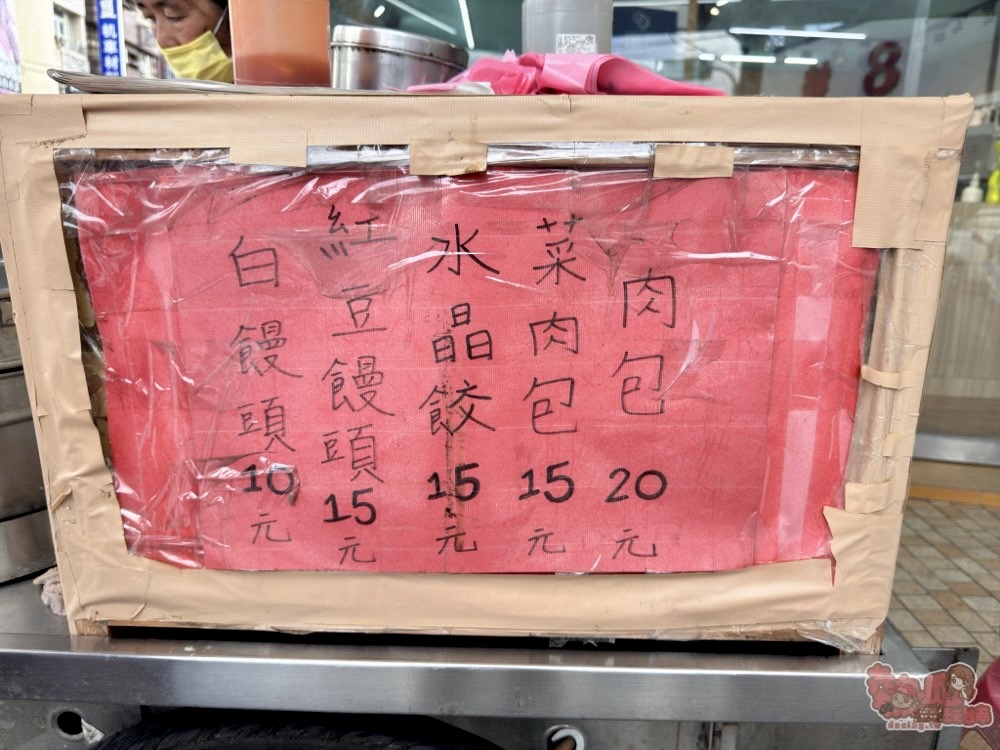 肉包20元
菜肉包15元
水晶餃15元
紅豆饅頭15元
白饅頭10元
8
机車材
decing.tw